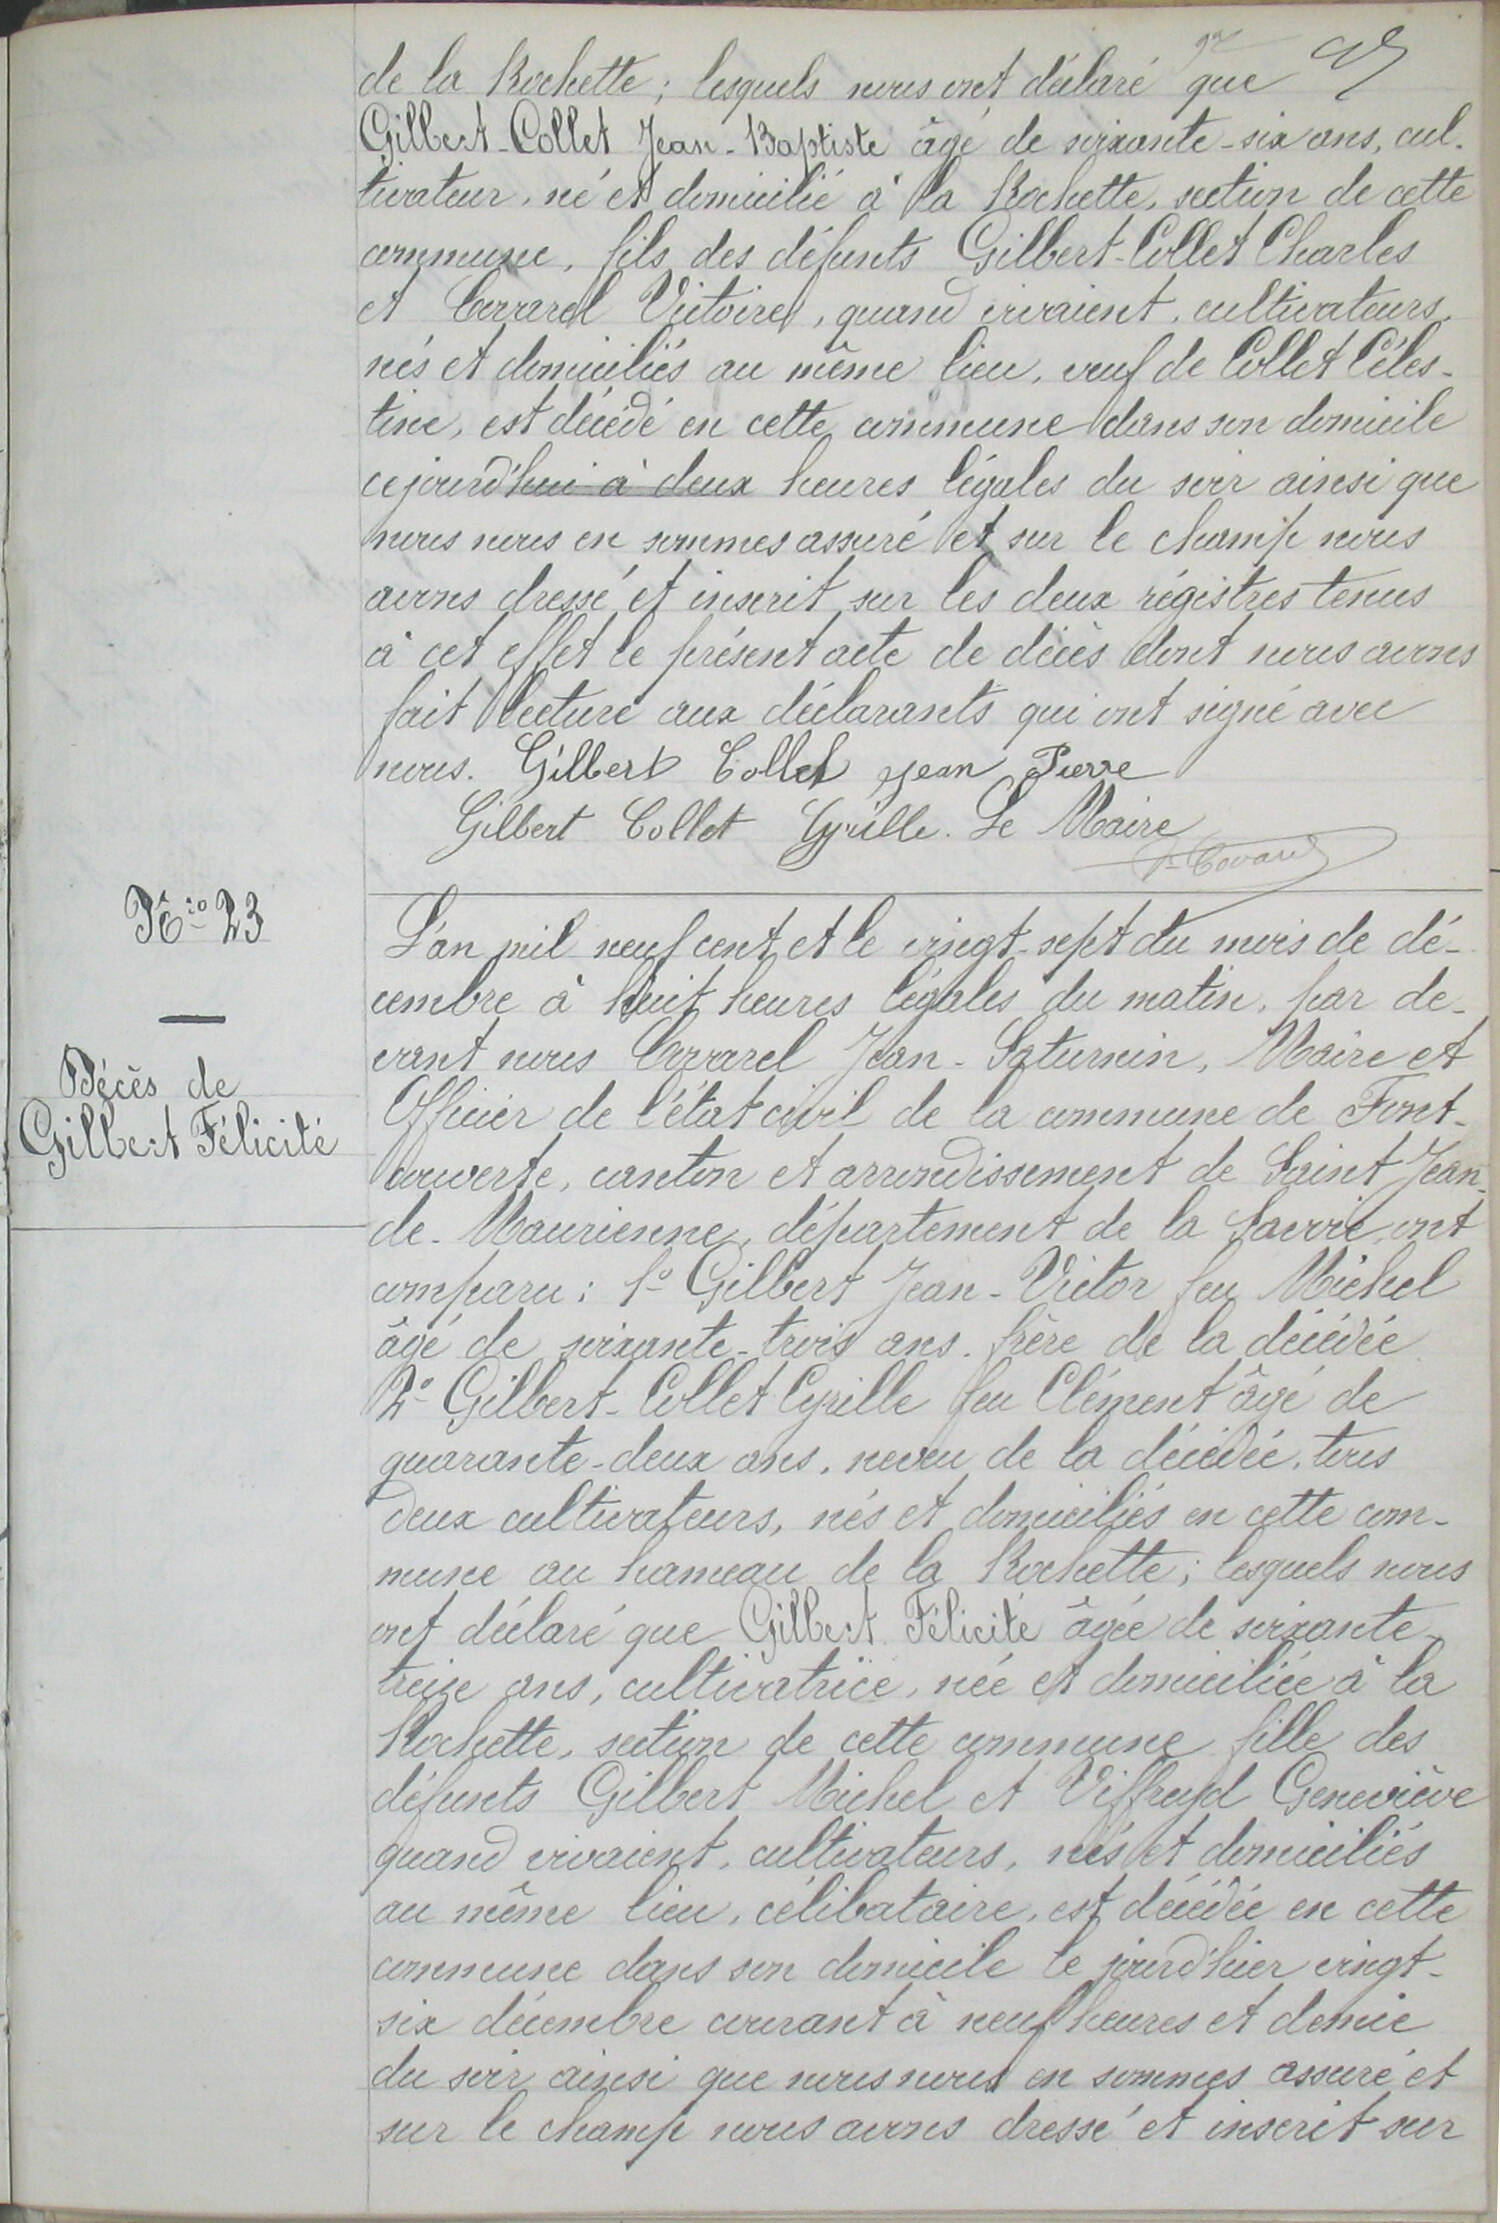 de la Rochette ; lesquels nous ont déclaré que
Gilbert-Collet Jean-Baptiste âgé de soixante-six ans, cul-
tivateur, né et domicilié à la Rochette, section de cette
commune, fils des défunts Gilbert-Collet Charles
et Covarel Victoire, quand vivaient, cultivateurs,
nés et domiciliés au même lieu, veuf de Collet Céles-
tine, est décédé en cette commune dans son domicile
cejourd'hui à deux heures légales du soir ainsi que
nous nous en sommes assuré et sur le champ nous
avons dressé et inscrit sur les deux régistres tenus
à cet effet le présent acte de décès dont nous avons
fait lecture aux déclarants qui ont signé avec
nous. Gilbert Collet Jean Pierre
Gilbert Collet Cyrille. Le Maire
Covarel
N° 23
Décès de
Gilbert Félicité
L'an mil neuf cent et le vingt-sept du mois de dé-
cembre à huit heures légales du matin, par de-
vant nous Covarel Jean-Saturnin, Maire et
Officier de l'état civil de la commune de Font-
couverte, canton et arrondissement de Saint Jean-
de-Maurienne, département de la Savoie, ont
comparu : 1° Gilbert Jean-Victor feu Michel
âgé de soixante-trois ans. frère de la décédée
2° Gilbert-Collet Cyrille feu Clément âgé de
quarante-deux ans, neveu de la décédée, tous
deux cultivateurs, nés et domiciliés en cette com-
mune au hameau de la Rochette ; lesquels nous
ont déclaré que Gilbert Félicité âgée de soixante-
treize ans, cultivatrice, née et domiciliée à la
Rochette, section de cette commune fille des
défunts Gilbert Michel et Viffreyd Geneviève
quand vivaient, cultivateurs, nés et domiciliés
au même lieu, célibataire, est décédée en cette
commune dans son domicile le jourd'hier vingt-
six décembre courant à neuf heures et demie
du soir ainsi que nous nous en sommes assuré et
sur le champ nous avons dressé et inscrit sur